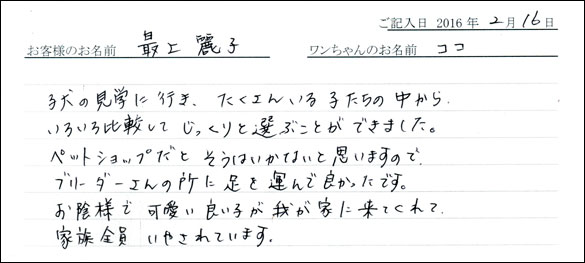 ご記入日 2016年2月16日
お客様のお名前 最上 麗子 ワンちゃんのお名前 ココ
子犬の見学に行き、たくさんいる子たちの中から
いろいろ比較して じっくりと選ぶことができました。
ペットショップだと そうはいかないと思いますので、
ブリーダーさんの所に足を運んで良かったです。
お陰様で 可愛い良い子が我が家に来てくれて、
家族全員 いやされています。